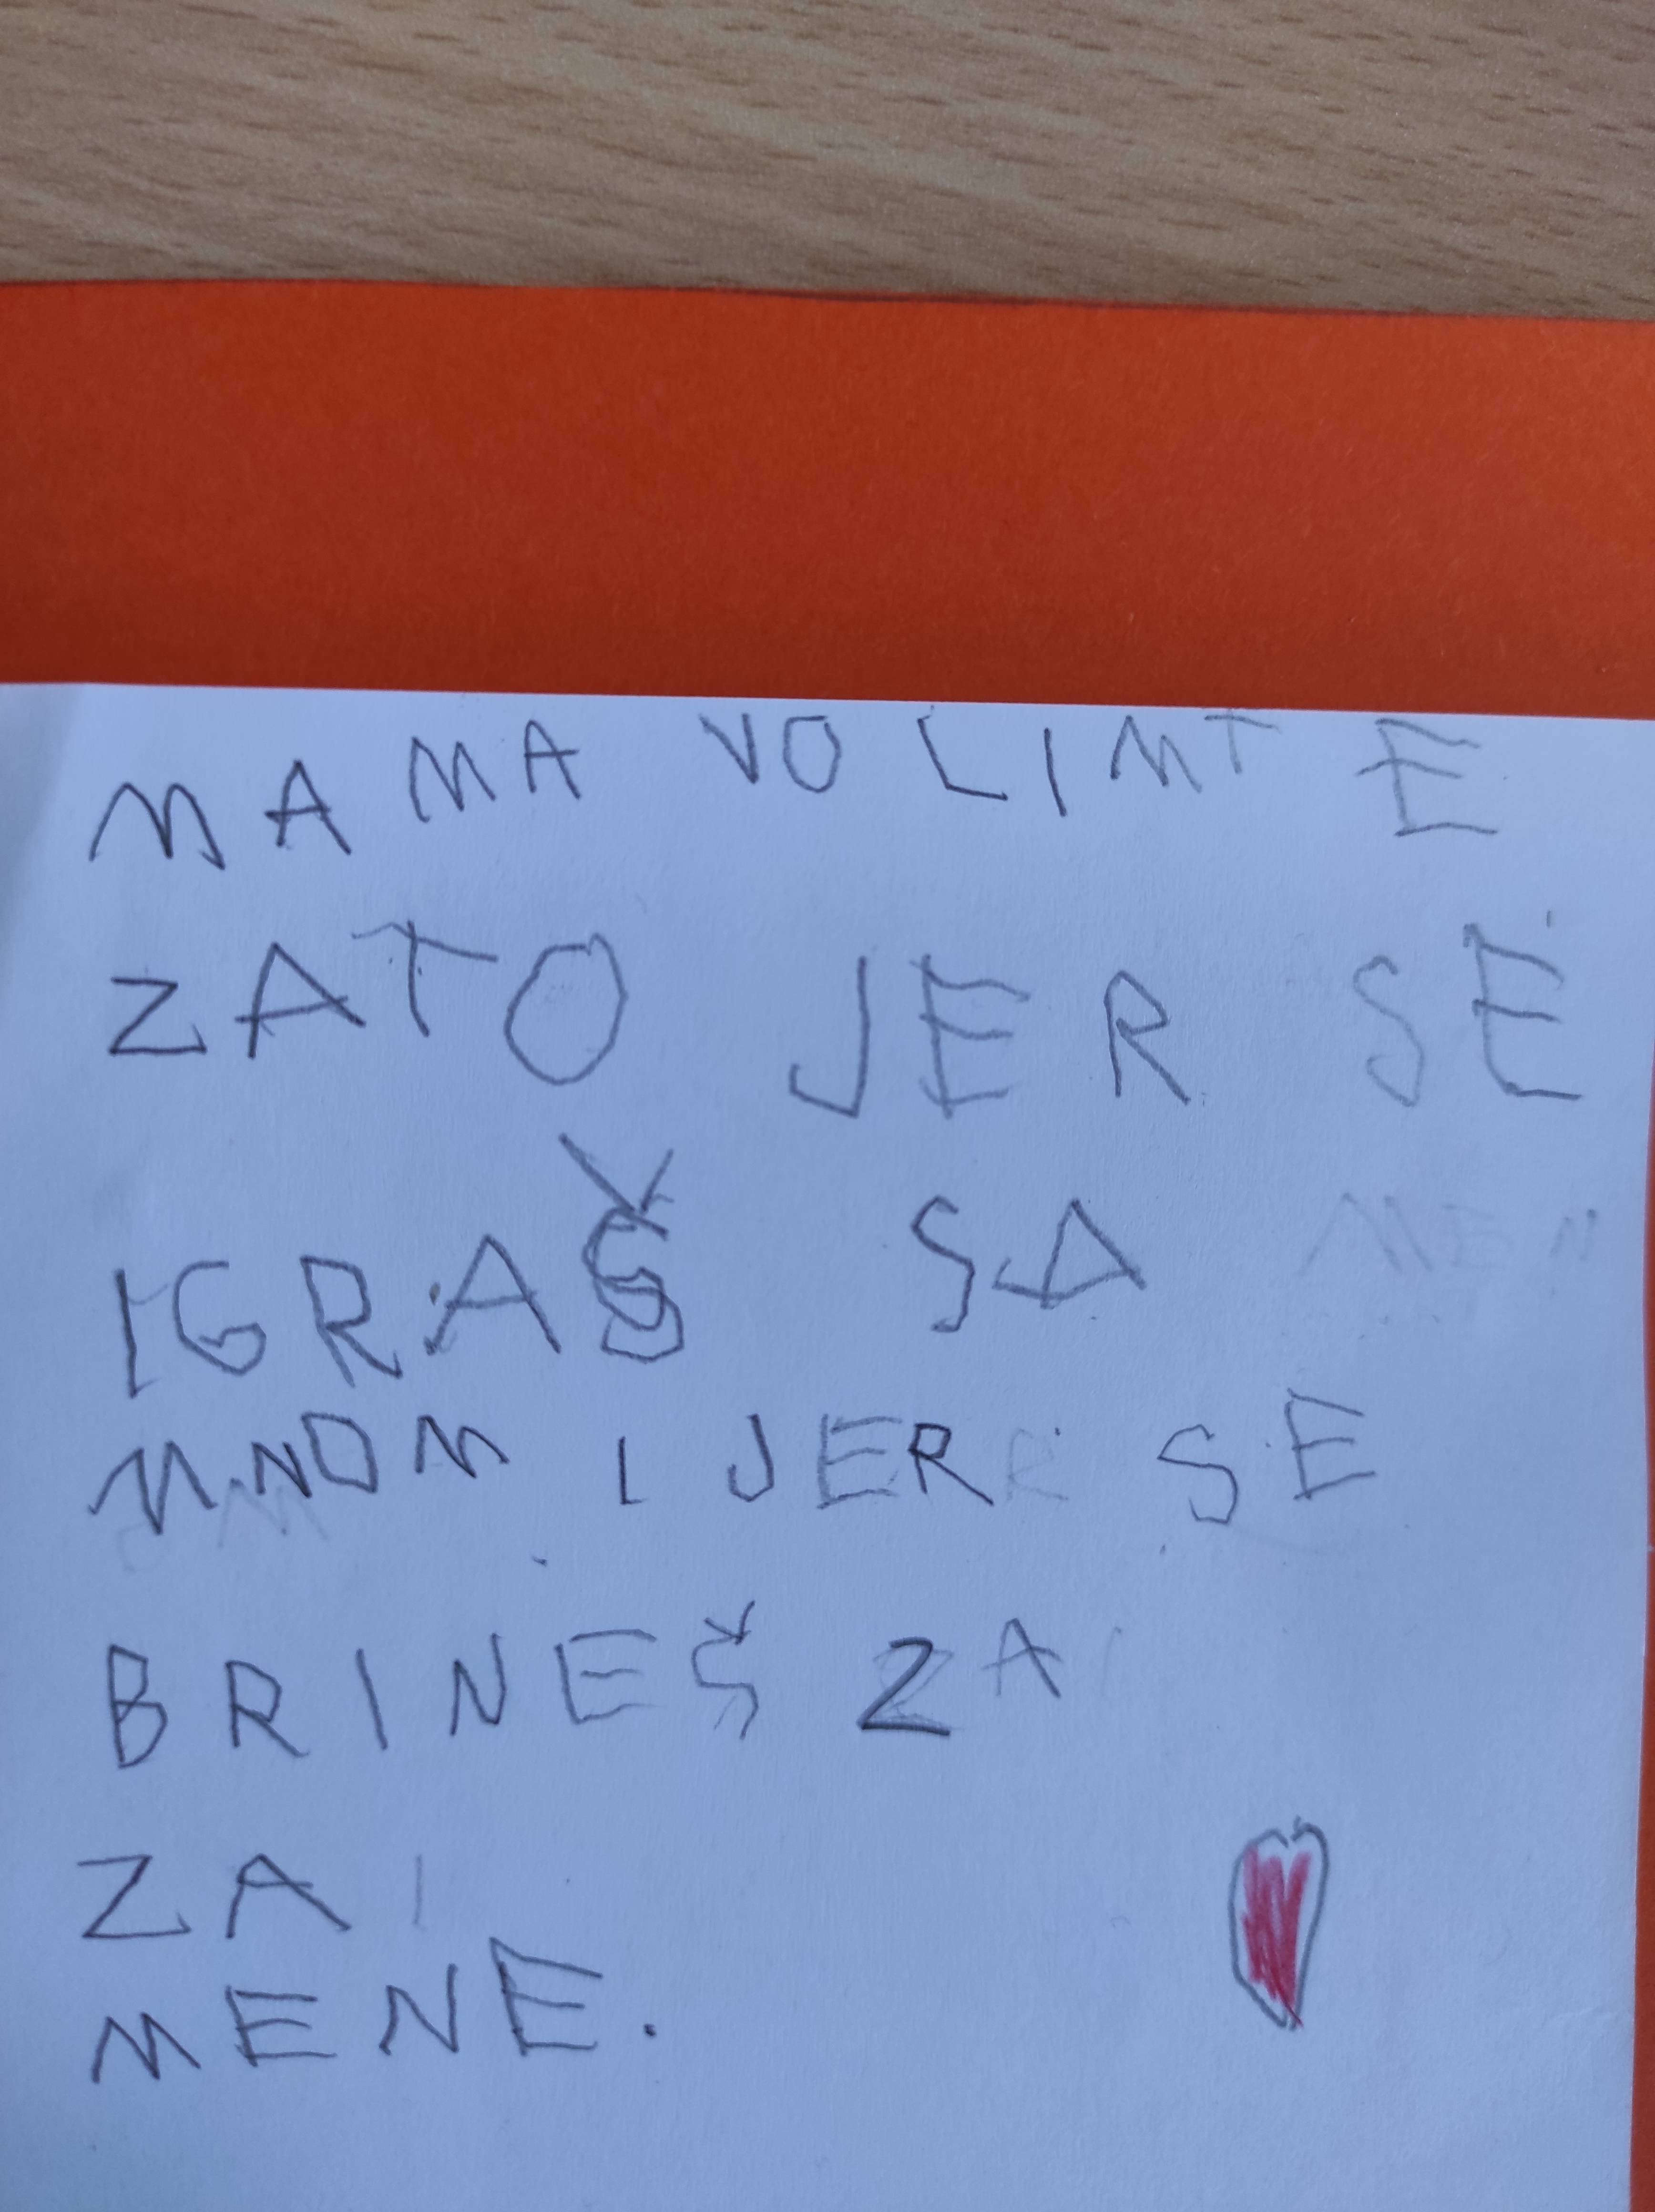 MAMA VOLIMTE
ZATO JER SE
IGRAŠ SA
MNOM I JER SE
BRINEŠ ZA
ZA
MENE.